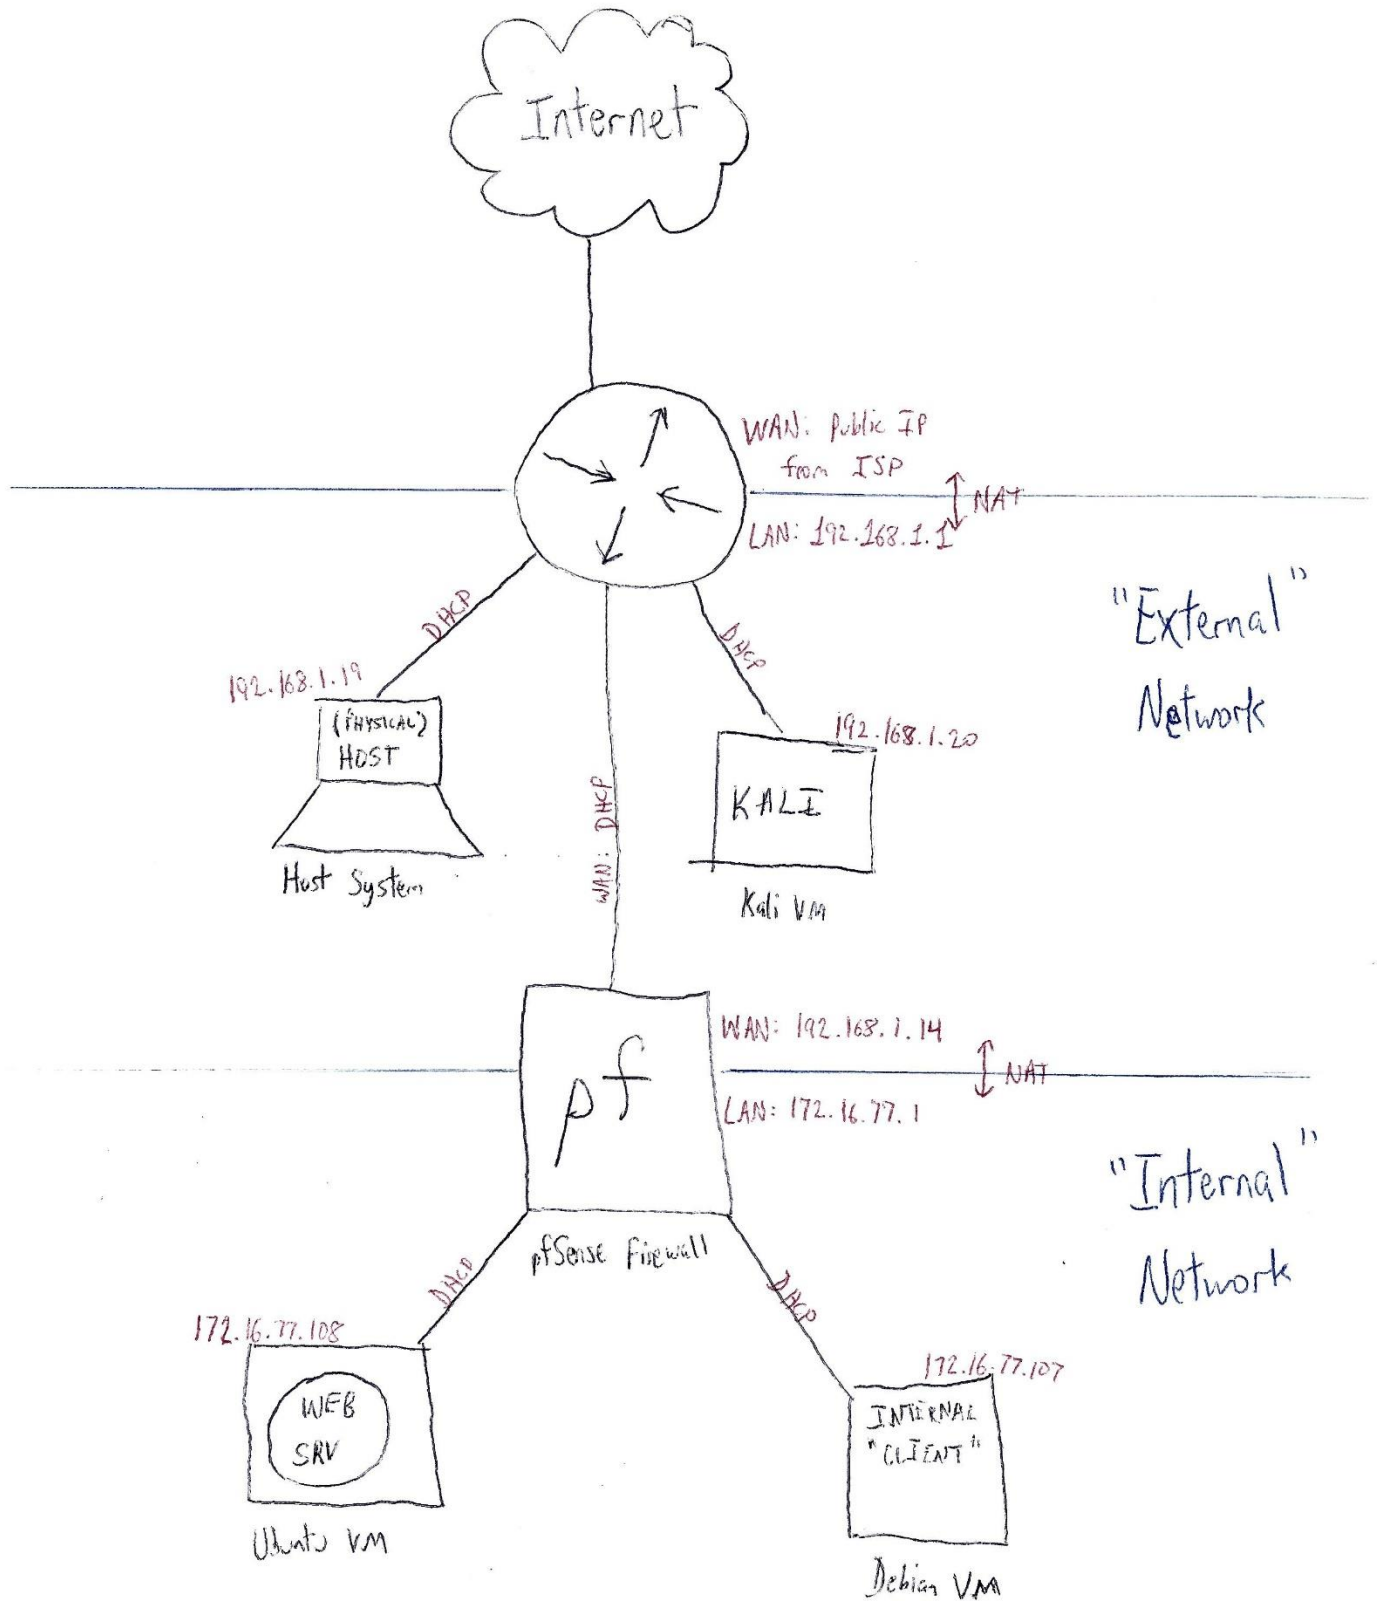 Internet
WAN: Public IP
from ISP
NAT
LAN: 192.168.1.1
"External"
Network
DHCP
DHCP
192.168.1.19
(PHYSICAL)
HOST
Host System
WAN: DHCP
192.168.1.20
KALI
Kali VM
pf
WAN: 192.168.1.14
NAT
LAN: 172.16.77.1
pfSense Firewall
"Internal"
Network
DHCP
DHCP
172.16.77.108
WEB
SRV
Ubuntu VM
172.16.77.107
INTERNAL
"CLIENT"
Debian VM